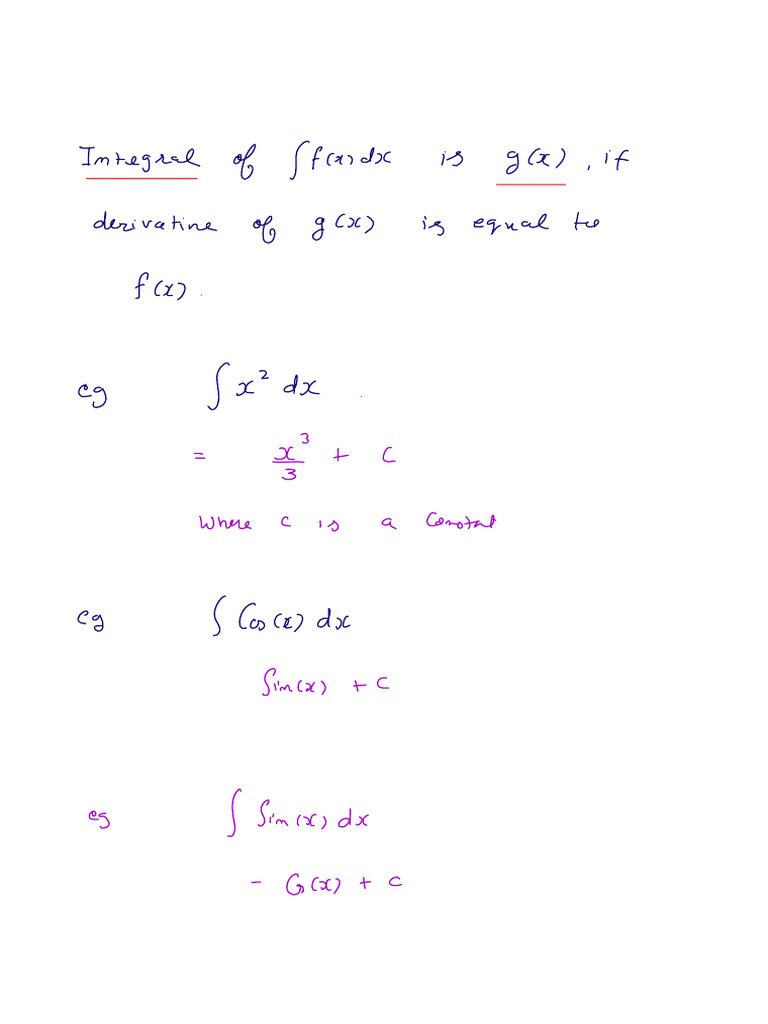 Integral of ∫ f(x) dx is g(x), if
derivative of g(x) is equal to
f(x).
eg ∫ x² dx
= x³/3 + C
Where c is a Constat
eg ∫ Cos(x) dx
Sin(x) + C
eg ∫ Sin(x) dx
- Cos(x) + C